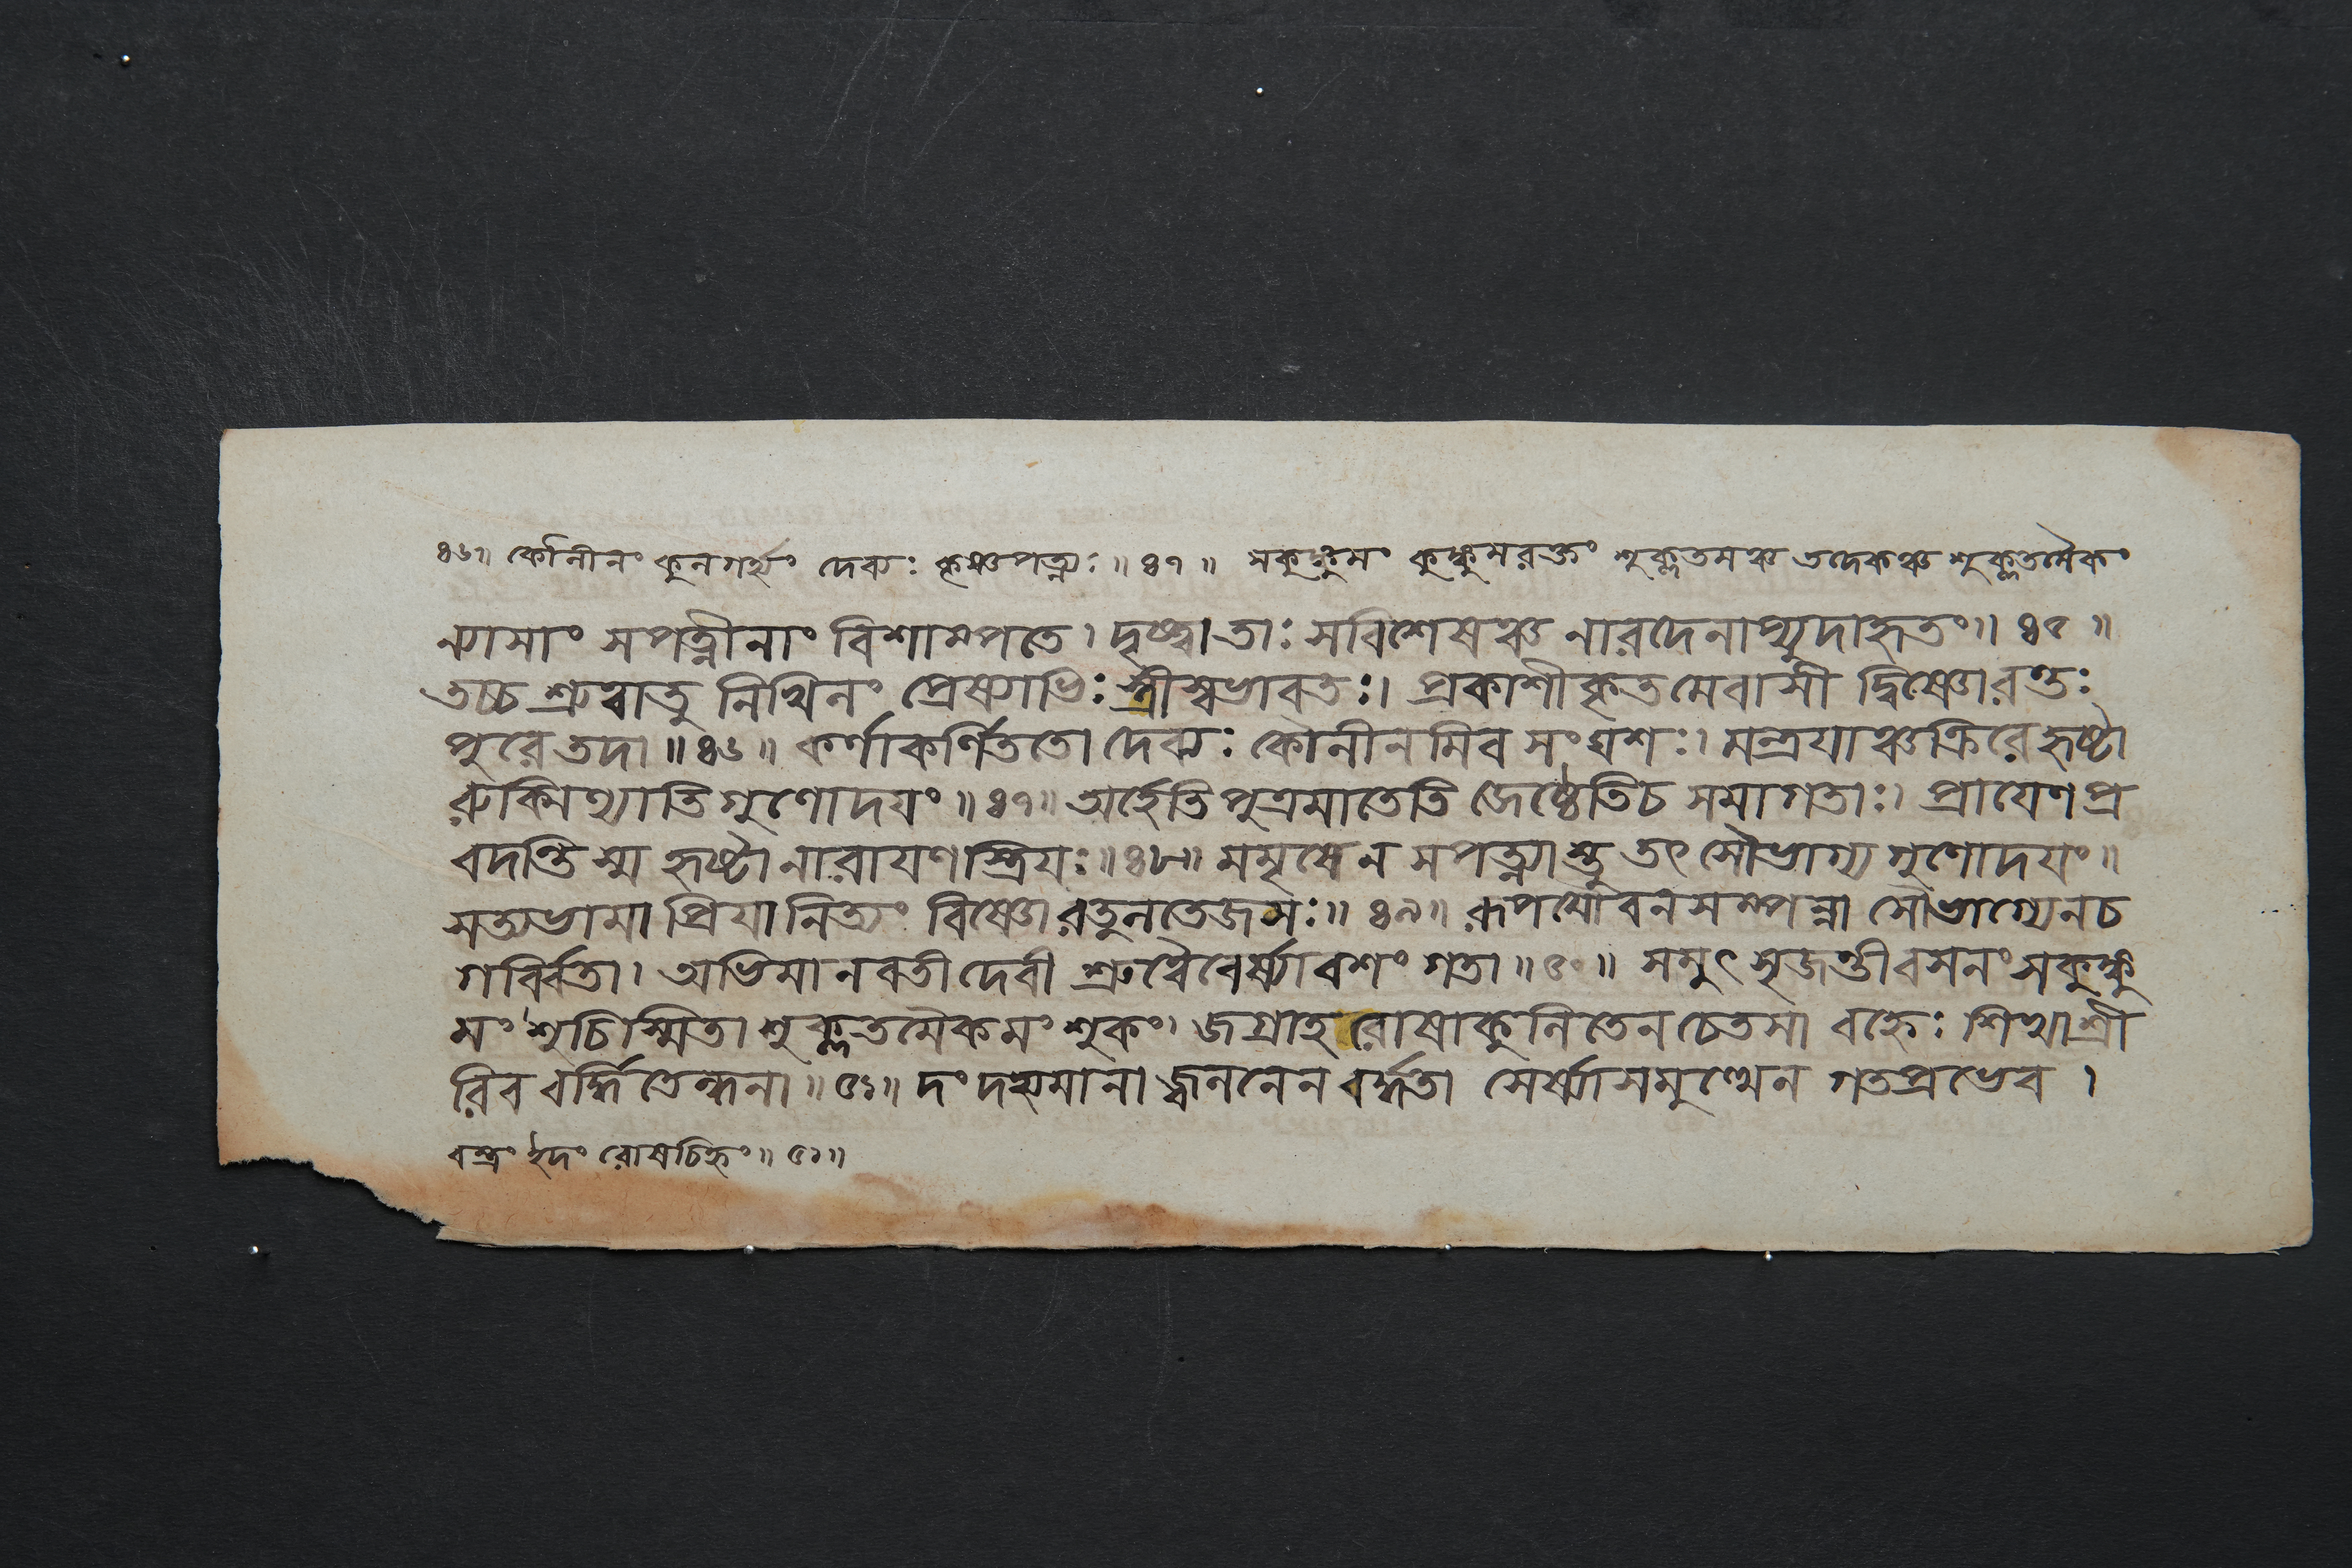 ৪৬॥ কৌলীনং কুলগর্হ্যং দেব্যঃ কৃষ্ণপত্ন্যঃ॥ ৪৭॥ সকুঙ্কুমং কুঙ্কুমরক্তং শুক্লতমঞ্চ তদেকঞ্চ শুক্লতমৈকং
ন্যাসাং সপত্নীনাং বিশাম্পতে। দৃষ্ট্বা তাঃ সবিশেষঞ্চ নারদেনাপ্যুদাহৃতং॥ ৪৫॥
তচ্চ শ্রুত্বাতু নিখিলং প্রেষ্যাভিঃ স্ত্রীস্বভাবতঃ। প্রকাশীকৃতমেবাসী দ্বিষ্ণোরন্তঃ
পুরে তদা॥ ৪৬॥ কর্ণাকর্ণিততো দেব্যঃ কৌলীনমিব সংঘশঃ। মন্ত্রয়াঞ্চক্রিরে হৃষ্টা
রুক্মিণ্যাতিগুণোদয়ং॥ ৪৭॥ অর্হেতি পুত্রমাতেতি জ্যেষ্ঠেতিচ সমাগতাঃ। প্রায়েণ প্র
বদন্তি স্ম হৃষ্টা নারায়ণস্ত্রিয়ঃ॥ ৪৮॥ মমৃষে ন সপত্ন্যাস্তু তৎ সৌভাগ্যগুণোদয়ং॥
সত্যভামা প্রিয়া নিত্যং বিষ্ণোরতুলতেজসঃ॥ ৪৯॥ রূপযৌবনসম্পন্না সৌভাগ্যেনচ
গর্ব্বিতা। অভিমানবতী দেবী শ্রুত্বৈবের্ষ্যাবশং গতা॥ ৫০॥ সমুৎসৃজন্তী বসনং সকুঙ্কু
মং শুচিস্মিতা শুক্লতমৈকমংশুকং। জগ্রাহ রোষাকুলিতেন চেতসা বহ্নেঃ শিখাশ্রী
রিব বর্দ্ধিতেন্ধনা॥ ৫১॥ দংদহ্যমানা জ্বলনেন বর্দ্ধতা সের্ষ্যাসমুত্থেন গতপ্রভেব।
বস্ত্রং ইদং রোষচিহ্নং॥ ৫১॥